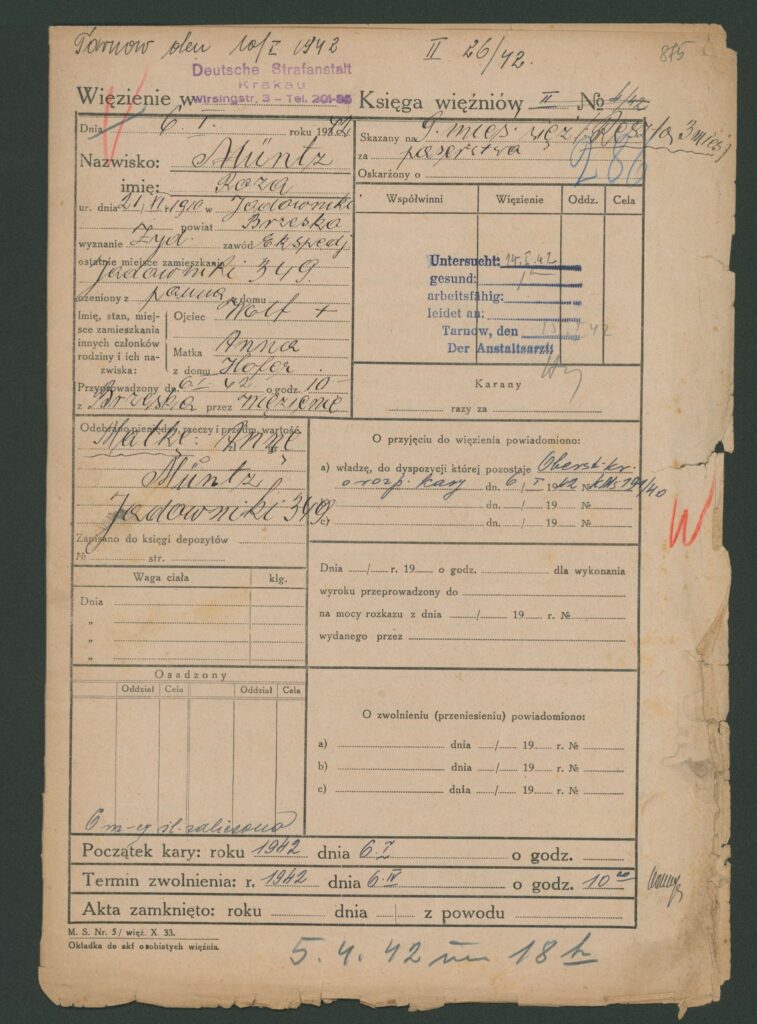 Tarnow den 10/I 1942 II 26/42. 875
Deutsche Strafanstalt
Krakau
Wirsingstr. 3 – Tel. 201-
Więzienie w
Księga więźniów II № 6/42
Dnia 6 I. roku 1942
Skazany na 9. mies. więz. (Reszta 3 mies.)
za paserstwa
286
Oskarżony o
Nazwisko: Müntz
imię: Roza
ur. dnia 21/VI r. 1910 w Jadowniki
powiat Brzesko
wyznanie Żyd. zawód Ekspedj
ostatnie miejsce zamieszkania
Jadowniki 349.
ożeniony z panna z domu
Imię, stan, miejsce zamieszkania innych członków rodziny i ich nazwiska:
Ojciec Wolf +
Matka Anna
z domu Hofer
Przyprowadzony dn. 6 I. 42 o godz. 10
z Brzeska przez więzienie
Współwinni Więzienie Oddz. Cela
Untersucht: 14.I.42
gesund:
arbeitsfähig:
leidet an:
Tarnow, den 42
Der Anstaltsarzt:
Karany
razy za
Odebrano pieniędzy, rzeczy i przedm. wartość.
Matka: Anna
Müntz
Jadowniki 349.
Zapisano do księgi depozytów
№ str.
O przyjęciu do więzienia powiadomiono:
a) władzę, do dyspozycji której pozostaje Oberst. kr.
o rozp. kary dn. 6/I 1942 №
dn. / 19 №
c) dn. / 19 №
Waga ciała klg.
Dnia
„
„
„
Dnia / r. 19 o godz. dla wykonania
wyroku przeprowadzony do
na mocy rozkazu z dnia / 19 r. №
wydanego przez
Osadzony
Oddział Cela Oddział Cela
6 m-cy śl. zaliczono
O zwolnieniu (przeniesieniu) powiadomiono:
a) dnia / 19 r. №
b) dnia / 19 r. №
c) dnia / 19 r. №
Początek kary: roku 1942 dnia 6 I o godz.
Termin zwolnienia: r. 1942 dnia 6 IV o godz. 10 00
Akta zamknięto: roku dnia z powodu
M. S. Nr. 5 / więź. X. 33.
Okładka do akt osobistych więźnia.
5. 4. 42 um 18 h